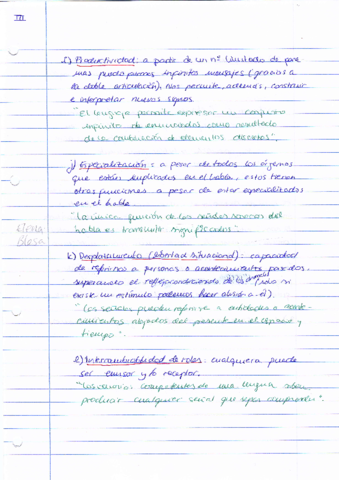 III
i) Productividad: a parte de un nº limitado de fone
mas puedo formar infinitos mensajes (gracias a
la doble articulación). Nos permite, además, construir
e interpretar nuevos signos.
"El lenguaje permite expresar un conjunto
infinito de enunciados como resultado
de la combinación de elementos discretos".
j) Especialización: a pesar de todos los órganos
que están implicados en el habla, estos tienen
otras funciones a pesar de estar especializados
en el habla
"La única función de las señales sonoras del
habla es transmitir significados".
k) Desplazamiento (libertad situacional): capacidad
de referirnos a personas o acontecimientos
separamos el reflejo condicionado de los (solo si
existe un estímulo podemos hacer alusión a él).
"Las señales pueden referirse a entidades o aconte-
cimientos alejados del presente en el espacio y
tiempo".
l) Intercambiabilidad de roles: cualquiera puede
ser emisor y/o receptor.
"Usuarios competentes de una lengua saben
producir cualquier señal que sepan comprender".
Elena